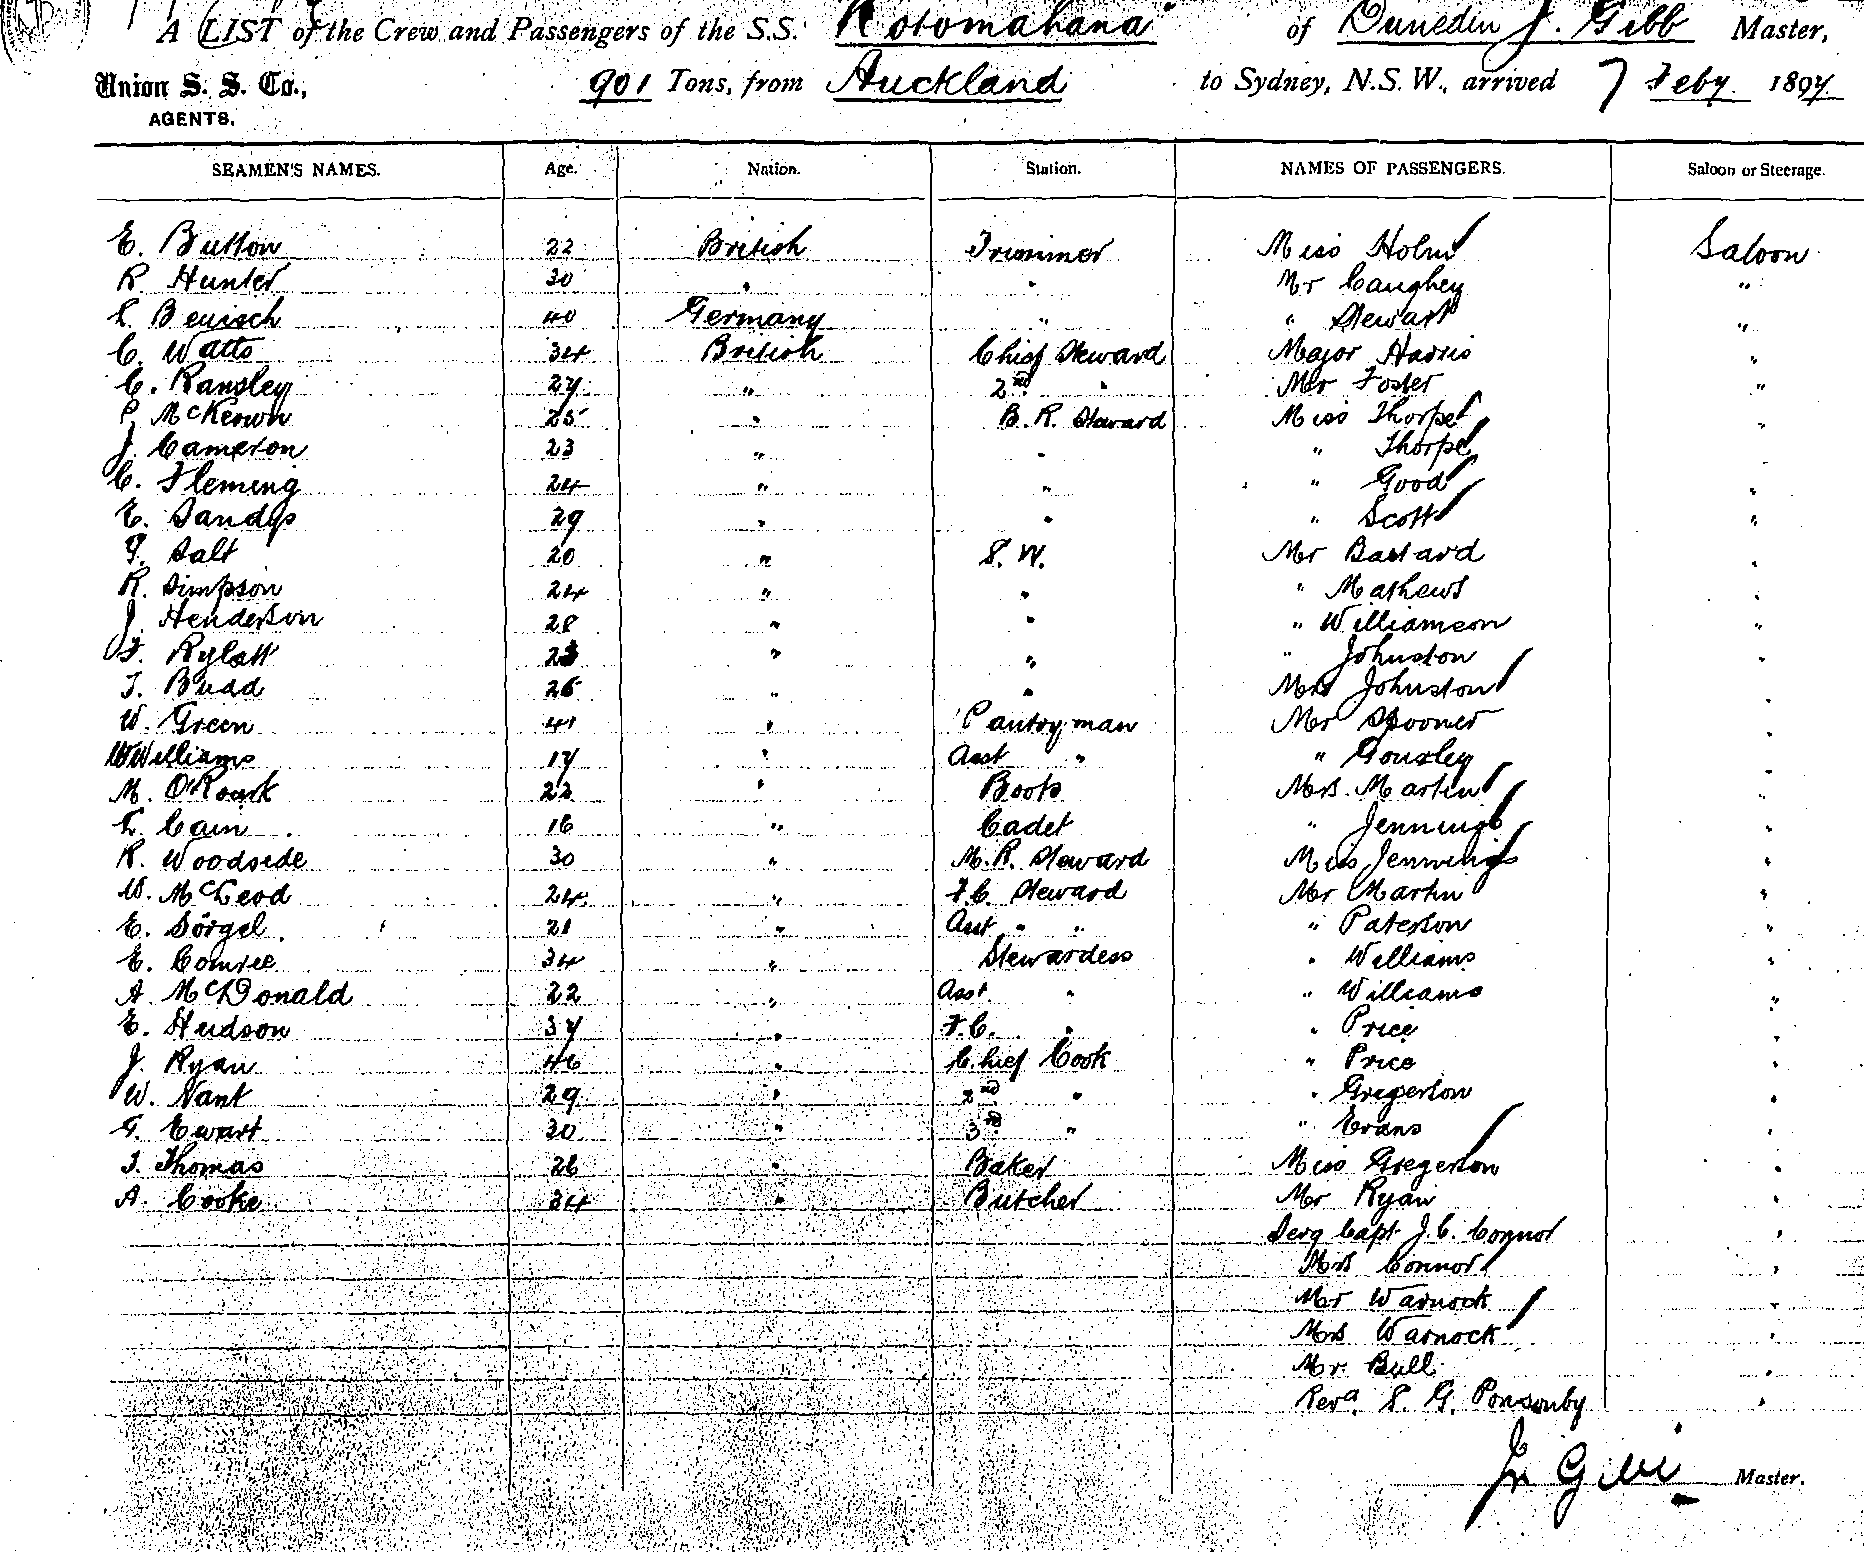 A LIST of the Crew and Passengers of the S.S. Rotomahana of Dunedin J. Gibb Master,
Union S. S. Co., 901 Tons, from Auckland to Sydney, N.S.W., arrived 7 Feby. 1897
AGENTS.
SEAMEN'S NAMES. Age. Nation. Station. NAMES OF PASSENGERS. Saloon or Steerage.
E. Button 22 British Trimmer Miss Holm Saloon
R. Hunter 30 " " Mr Caughey "
40 Germany " " Stewart "
C. Watts 34 British Chief Steward Major Harris "
C. Ransley 27 " 2nd " Mr Foster "
P. McKeown 25 " B. R. Steward Miss Thorpe "
J. Cameron 23 " " " Thorpe "
C. Fleming 24 " " " Good "
E. Sandys 29 " " " Scott "
Salt 20 " S. W. Mr Bastard "
R. Simpson 24 " " " Mathews "
J. Henderson 28 " " " Williamson "
F. Rylatt " " " Johnston "
T. Budd 26 " " Mrs Johnston "
W. Green 41 " Pantryman Mr Spooner "
W Williams 17 " Asst " " Gouxley "
M. O'Rourk 22 " Boots Mrs. Martin "
Cain 16 " Cadet " Jennings "
R. Woodside 30 " M. R. Steward Miss Jennings "
W. McLeod 24 " F.C. Steward Mr Martin "
E. Sörgel 21 " Asst " " " Paterson "
E. Comree 34 " Stewardess " Williams "
A. McDonald 22 " Asst " " Williams "
E. Hudson 37 " F.C. " " Price "
J. Ryan 46 " Chief Cook " Price "
W. Nant 29 " 2nd " " Gregerson "
G. Ewart 30 " 3rd " " Evans "
T. Thomas 26 " Baker Miss Gregerson "
A. Cooke 34 " Butcher Mr Ryan "
Serg Capt J. C. Connor "
Mrs Connor "
Mr Warnock "
Mrs Warnock "
Mr. Bull "
Revd. S. G. Ponsonby "
Jn Gibb Master.